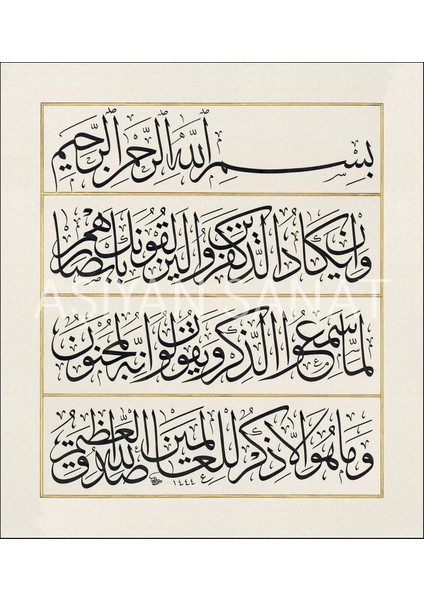 بِسْمِ اللَّهِ الرَّحْمٰنِ الرَّحِيمِ
وَإِنْ يَكَادُ الَّذِينَ كَفَرُوا لَيُزْلِقُونَكَ بِأَبْصَارِهِمْ
ASİYAN SANAT
لَمَّا سَمِعُوا الذِّكْرَ وَيَقُولُونَ إِنَّهُ لَمَجْنُونٌ
وَمَا هُوَ إِلَّا ذِكْرٌ لِلْعَالَمِينَ صَدَقَ اللَّهُ الْعَظِيمُ
١٤٤٤